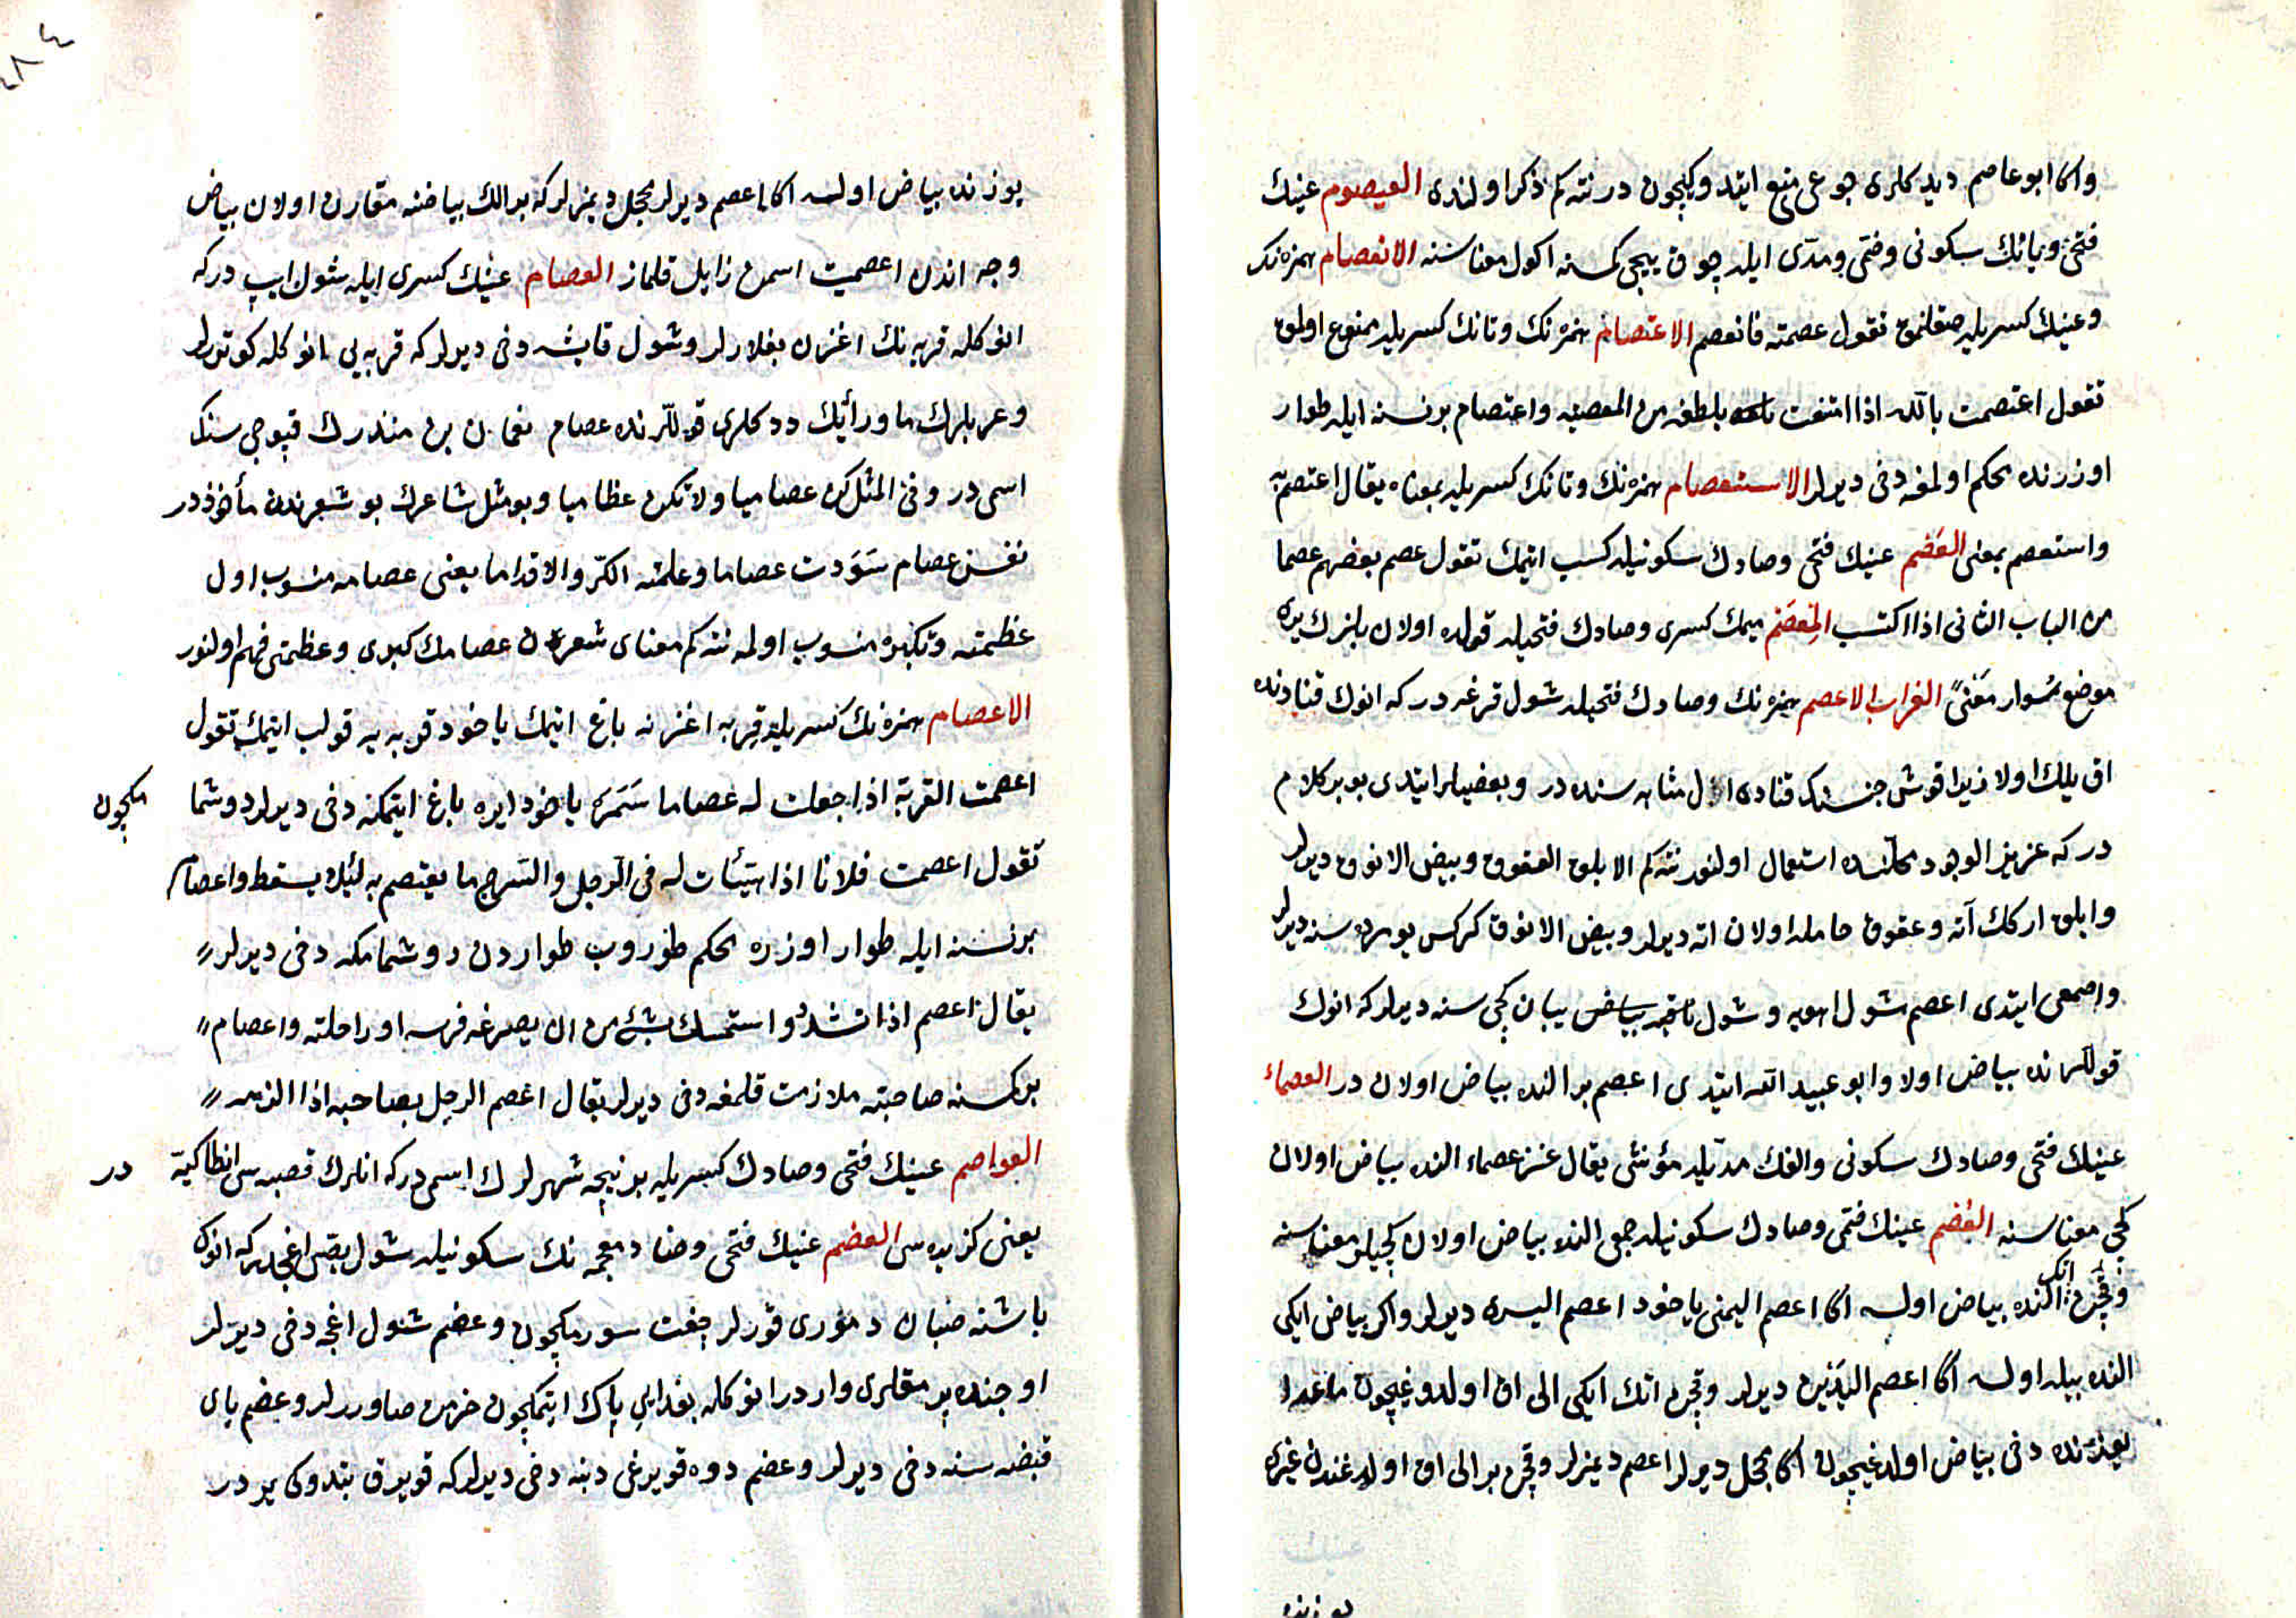 واكا ابو عاصم ديدكلرى جوعى منع ايتدوكيچون در نته كم ذكر اولندى العيصوم عينك
فتحى ويانك سكونى وضمى ومدى ايله چوق ييجى كمسنه اكول معناسنه الانعصام همزه نك
وعينك كسريله صقلنمق تقول عصمته فانعصم الاعتصام همزه نك وتانك كسريله ممنوع اولمق
تقول اعتصمت بالله اذا امتنعت بلطفه من المعصية واعتصام بر نسنه ايله طوار
اوزرنده محكم اولمغه دخى ديرلر الاستعصام همزه نك وتانك كسريله بمعناه يقال اعتصم به
واستعصم بمعنى العصم عينك فتحى وصادك سكونيله كسب ايتمك تقول عصم بعضهم عصما
من الباب الثانى اذا اكتسب المِعصَم ميمك كسرى وصادك فتحيله قولده اولان بلزك يرى
موضع سوار معنى الغراب الاعصم همزه نك وصادك فتحيله شول قرغه در كه انوك قنادنده
اق يلك اولا زيرا قوشى جنسنك قنادى ال مثابه سنده در وبعضيلر ايتدى بو بر كلام
در كه عزيز الوجود محلنده استعمال اولنور نته كم الابلق العقوق وبيض الانوق ديرلر
وابلق اركك آته وعقوق حامله اولان اته ديرلر وبيض الانوق كركس يومرده سنه ديرلر
واصمعى ايتدى اعصم شول اهويه وشول بياض يبان كچى سنه ديرلر كه انوك
قوللرنده بياض اولا وابو عبيد الله ايتدى اعصم بر النده بياض اولان در العصماء
عينك فتحى وصادك سكونى والفك مديله مؤنثى يقال عنز عصماء النده بياض اولان
كچى معناسنه العُصم عينك ضمى وصادك سكونيله جمعى النده بياض اولان كچيلر معناسنه
وقچن انك النده بياض اولسه اكا اعصم اليمنى ياخود اعصم اليسرى ديرلر واكر بياض ايكى
النده بيله اولسه اكا اعصم اليدين ديرلر وقچن انك ايكى الى اق اولدوغيچون ماعدا
يوزنده دخى بياض اولدغيچون اكا محجل ديرلر اعصم ديمزلر وقچن بر الى اق اولدغندن غيرى
يوزنده
٤٨٤
يوزنده بياض اولسه اكا اعصم ديرلر محجل ديمزلر كه بر الك بياضنه مقارن اولان بياض
وجه اندن اعصميت اسمن زايل قلماز العصام عينك كسرى ايله شول ايپ در كه
انوكله قربه نك اغزن بغلارلر وشول قايشه دخى ديرلر كه قربه يى انوكله كوتورلر
وعربلرك ما ورائك ددكلرى قوللرنده عصام نعمان بن منذرك قپوجى سنك
اسمى در وفى المثل كن عصاميا ولا تكن عظاميا وبو مثل شاعرك بو شعرندن مأخوذ در
نفس عصام سَوَّدت عصاما وعلمته الكرّ والاقداما يعنى عصامه منسوب اول
عظمته وتكبره منسوب اولمه نته كم معناى شعردن عصامك كبرى وعظمتى فهم اولنور
الاعصام همزه نك كسريله قربه اغزنه باغ ايتمك ياخود قربه يه قولپ ايتمك تقول
اعصمت القربة اذا جعلت له عصاما سَمَره ياخود ايره باغ ايتمكنه دخى ديرلر دوشما مكچون
تقول اعصمت فلانا اذا هيّئات له فى الرحل والسرج ما يعتصم به لئلا يسقط واعصام
بر نسنه ايله طوار اوزره محكم طوروب طواردن دوشمامكه دخى ديرلر
يقال اعصم اذا تشدّد واستمسك بشئ من ان يصرعه فرسه او راحلته واعصام
بر كسنه صاحبنه ملازمت قلمغه دخى ديرلر يقال اعصم الرجل بصاحبه اذا الزمه
العواصم عينك فتحى وصادك كسريله بر نيجه شهرلرك اسمى در كه انلرك قصبه سى انطاكية در
يعنى كزيده سى العضم عينك فتحى وضاد معجمه نك سكونيله شول يصى اغجدر كه انوك
باشنه صبان دمورى قورلر جفت سورمكچون وعضم شول اغجه دخى ديرلر
اوجنده بر مقلرى وار در انوكله بغدايى پاك ايتمكچون خرمن صاوررلر وعضم ياى
قبضه سنه دخى ديرلر وعضم دوه قويرغى دبنه دخى ديرلر كه قويرق بتدوكى ير در